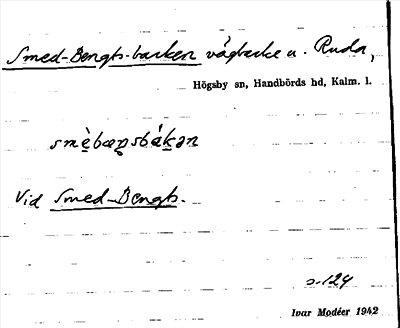 Smed-Bengts-backen vägbacke u. Ruda,
Högsby sn, Handbörds hd, Kalm. l.
smèbæŋsbákən
Vid Smed-Bengts.
s. 124
Ivar Modéer 1942